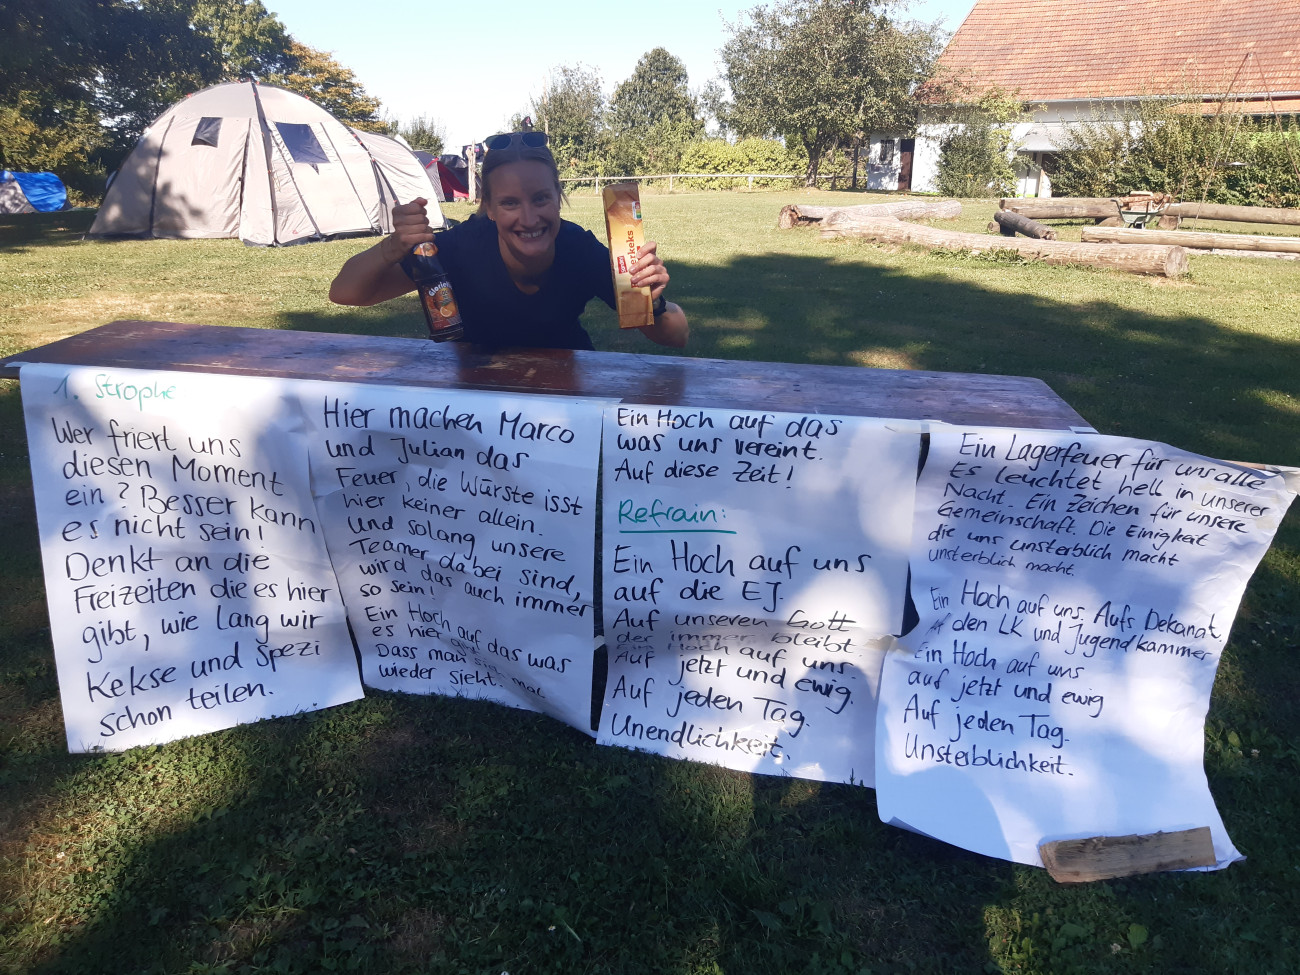 1. Strophe
Wer friert uns
diesen Moment
ein? Besser kann
es nicht sein!
Denkt an die
Freizeiten die es hier
gibt, wie lang wir
Kekse und Spezi
schon teilen.
Hier machen Marco
und Julian das
Feuer, die Würste isst
hier keiner allein.
Und solang unsere
Teamer dabei sind,
wird das auch immer
so sein!
Ein Hoch auf das was
es hier gibt
Dass man sich mal
wieder sieht.
Ein Hoch auf das
was uns vereint.
Auf diese Zeit!
Refrain:
Ein Hoch auf uns
auf die EJ.
Auf unseren Gott
der immer bleibt.
Ein Hoch auf uns.
Auf jetzt und ewig.
Auf jeden Tag.
Unendlichkeit.
Ein Lagerfeuer für uns alle
Es leuchtet hell in unserer
Nacht. Ein Zeichen für unsere
Gemeinschaft. Die Einigkeit
die uns unsterblich macht
unsterblich macht.
Ein Hoch auf uns, Aufs Dekanat.
Auf den LK und Jugendkammer
Ein Hoch auf uns
auf jetzt und ewig
Auf jeden Tag.
Unsterblichkeit.
erkeks